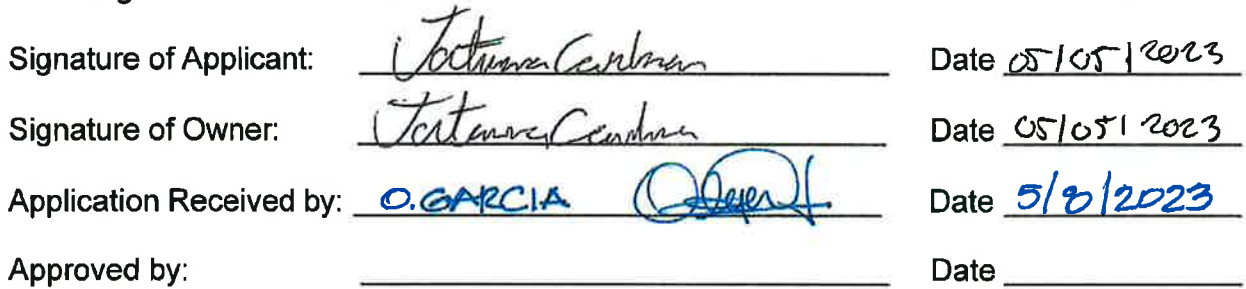 Signature of Applicant: Date 05/05/2023
Signature of Owner: Date 05/05/2023
Application Received by: O. GARCIA Date 5/8/2023
Approved by: Date